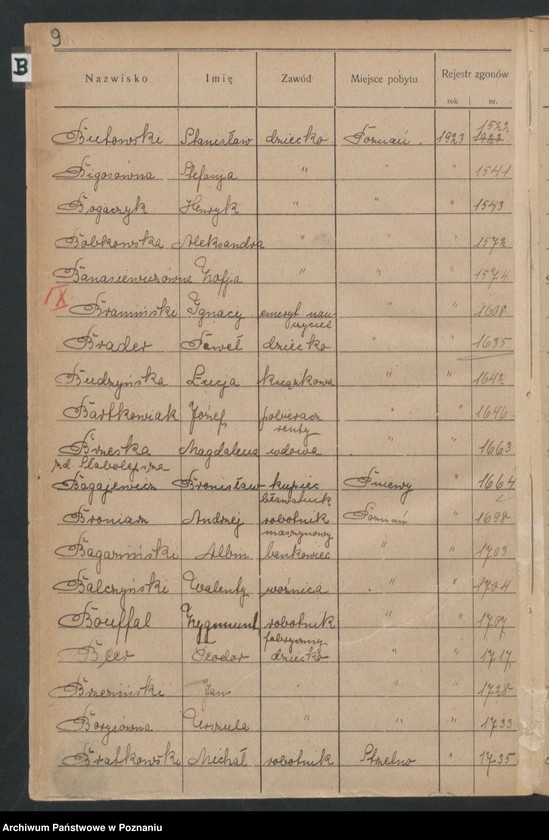 9
B
Nazwisko Imię Zawód Miejsce pobytu Rejestr zgonów
rok nr.
1522
Butowski Stanisław dziecko Poznań. 1923 1922
Bigosówna Stefanja " " " 1541
Bogaczyk Henryk " " " 1543
Bobkowska Aleksandra " " " 1572
Banasiewiczówna Zofja " " " 1574
IX
Bramiński Ignacy emeryt nau- " " 1608
uyciel
Brader Paweł dziecko " " 1635
Budzyńska Łucja książkowa " " 1642
Bartkowiak Józef pobieracz " " 1646
renty
Brzeska Magdalena wdowa " " 1663
zd. Słabolepsza
Bogajewicz Bronisław kupiec Pniewy " 1664
bławatnik
Broniarz Andrzej robotnik Poznań " 1698
maszynowy
Bagarziński Albin bankowiec " " 1703
Balczyński Walenty woźnica " " 1704
Bouffal Zygmunt robotnik " " 1707
fabryczny
Beer Teodor dziecko " " 1717
Brzeziński Jan " " " 1728
Borysówna Urszula " " " 1733
Bratkowski Michał robotnik Strzelno " 1735
Archiwum Państwowe w Poznaniu